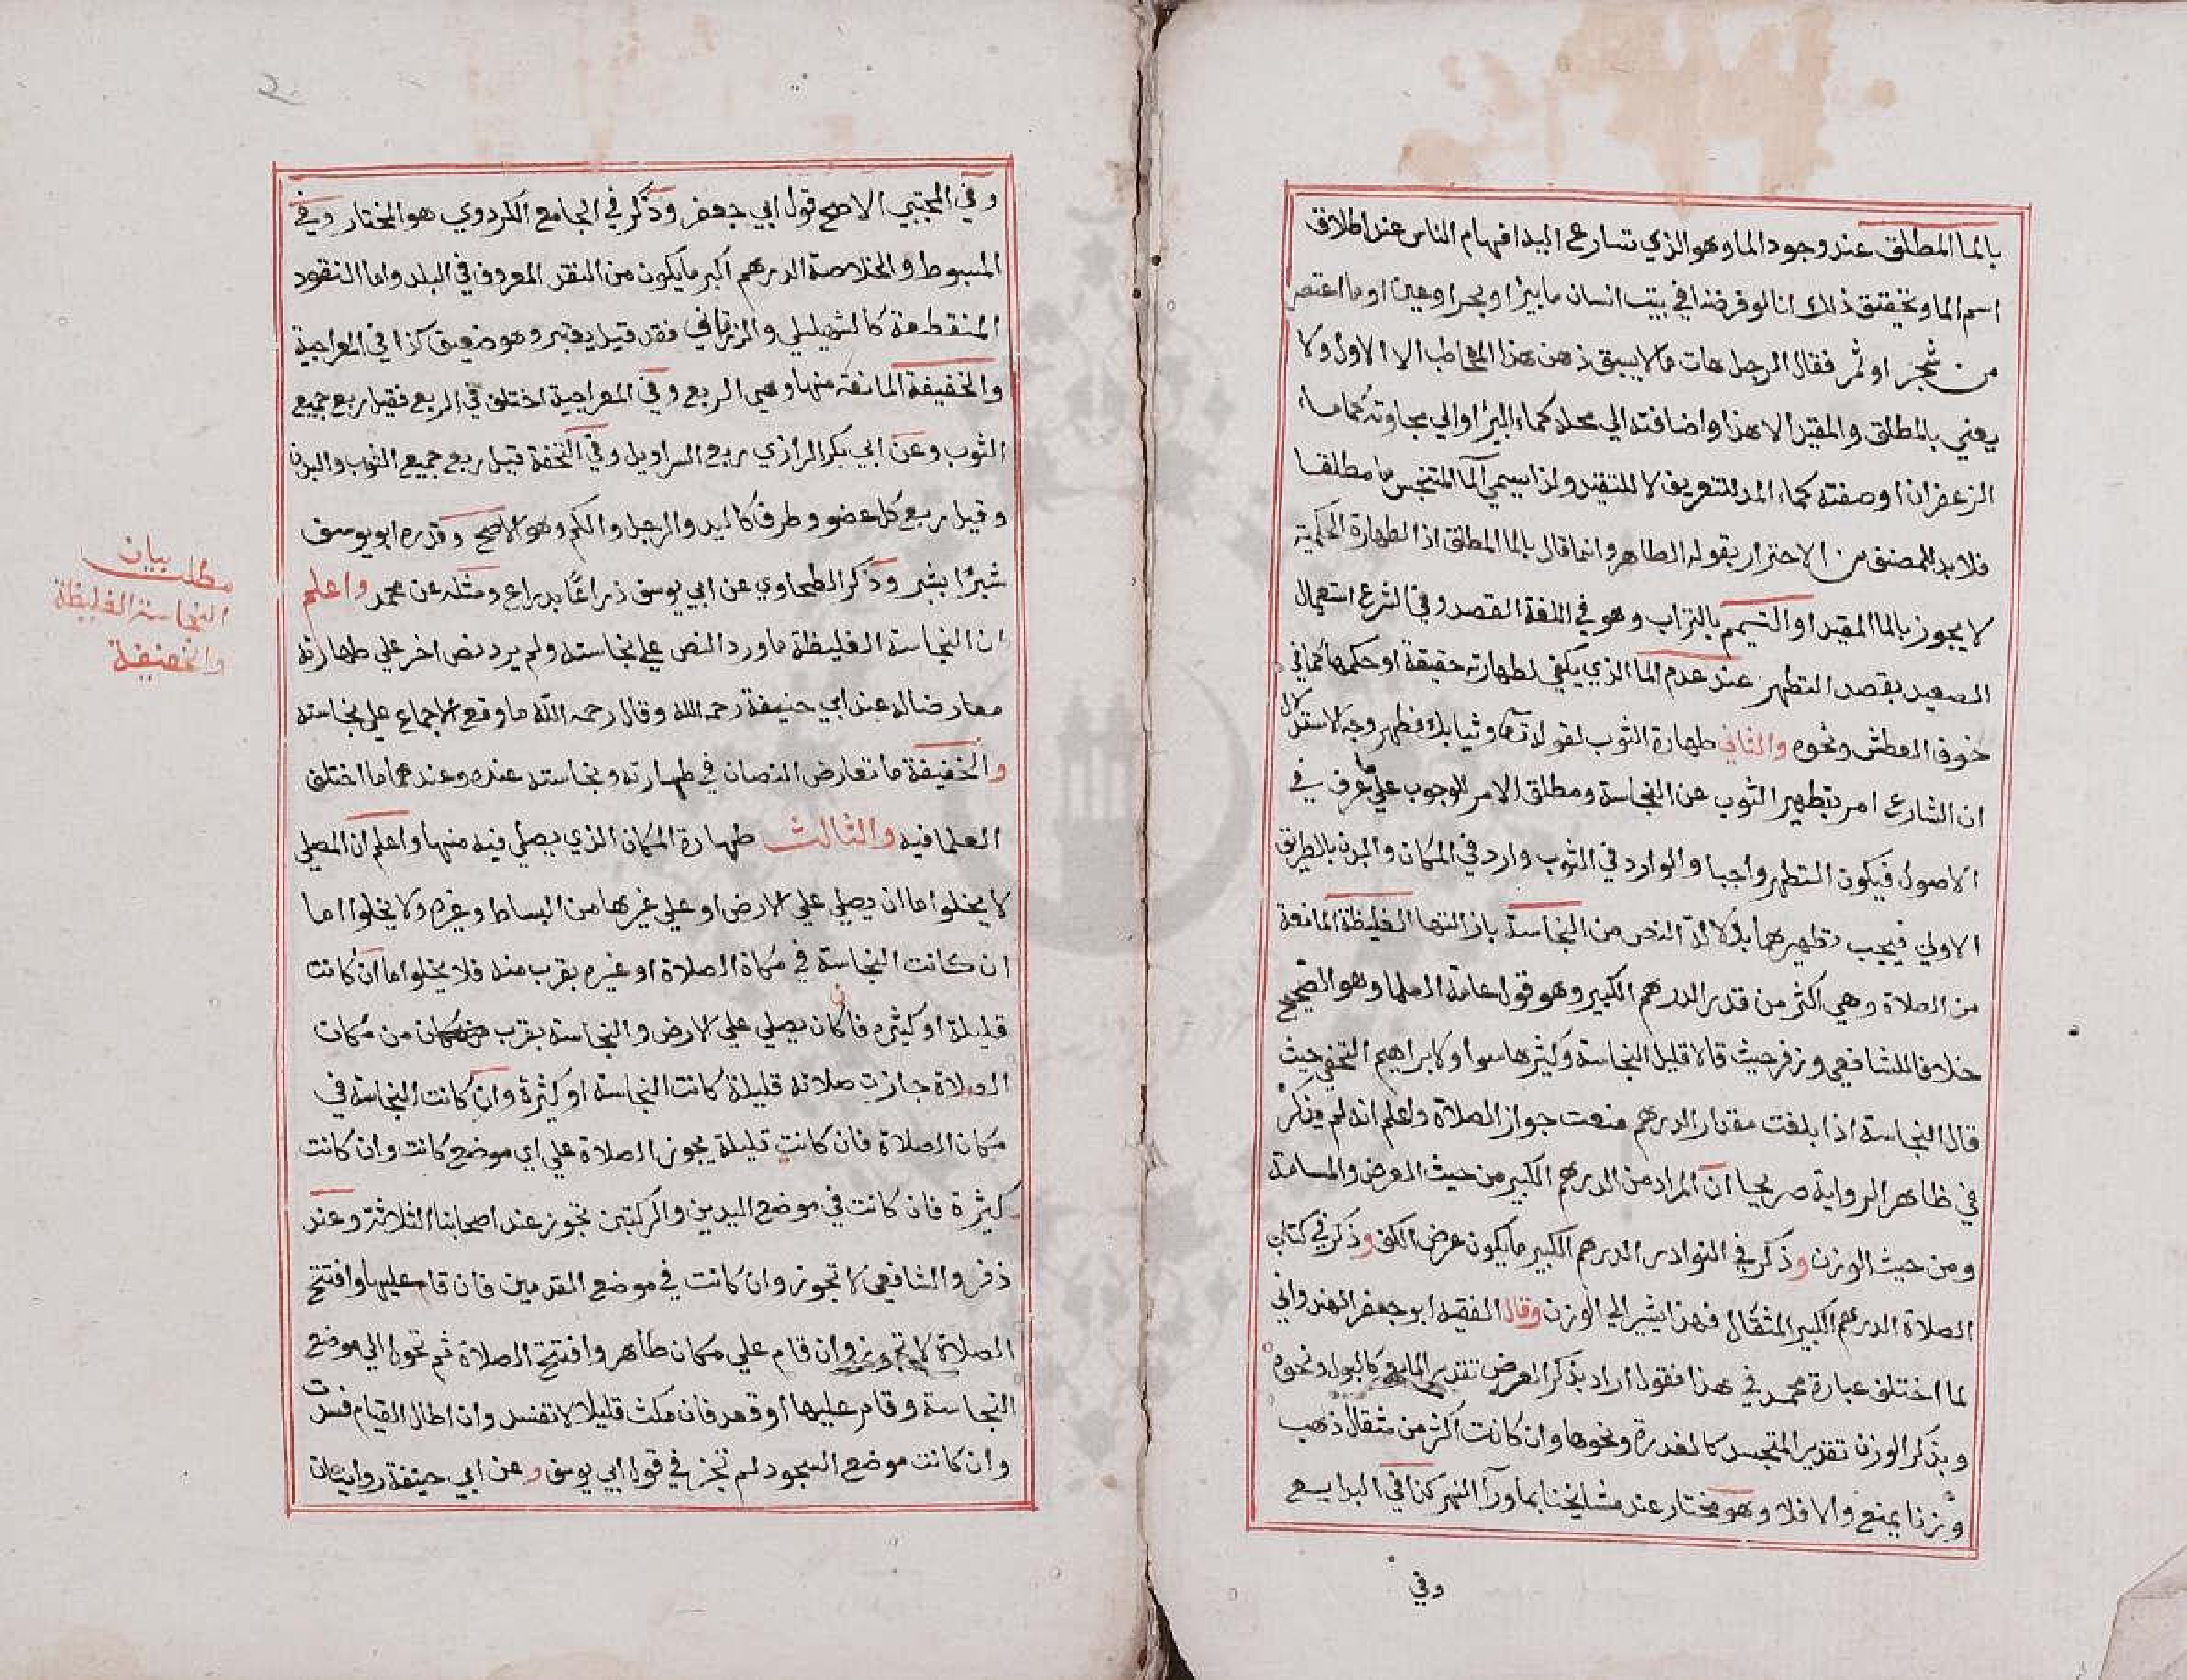 بالما المطلق عند وجود الما وهو الذي تسارع اليه افهام الناس عند اطلاق
اسم الما وتحقيق ذلك انا لو فرضنا في بيت انسان ما بيرا او بحرا وعين او ما اعتصر
من شجر او ثمر فقال الرجل هات ما لا يسبق ذهن هذا المخاطب الا الاول ولا
يعني بالمطلق والمقيد الا هذا واضافته الي محله كماء البير او الي مجاوته كماء
الزعفران او صفته كماء المد للتعريف لا للتقيد ولذا يسمي الما المتنجس ما مطلقا
فلابد للمصنف من الاحتراز بقوله الطاهر وانما قال بالما المطلق اذ الطهارة الحكمية
لا يجوز بالما المقيد او التيمم بالتراب وهو في اللغة القصد وفي الشرع استعمال
الصعيد بقصد التطهر عند عدم الما الذي يكفي لطهارته حقيقة او حكما كما في
خوف العطش ونحوه والثاني طهارة الثوب لقوله تعا وثيابك فطهر وجه الاستدلال
ان الشارع امر بتطهير الثوب عن النجاسة ومطلق الامر للوجوب علي ما عرف في
الاصول فيكون التطهر واجبا والوارد في الثوب وارد في المكان والبدن بالطريق
الاولي فيجب تطهيرهما بدلالة النص من النجاسة بازالتها الغليظة المانعة
من الصلاة وهي اكثر من قدر الدرهم الكبير وهو قول عامة العلما وهو الصحيح
خلافا للشافعي وزفر حيث قالا قليل النجاسة وكثيرها سوا ولابراهيم النخعي حيث
قال النجاسة اذا بلغت مقدار الدرهم منعت جواز الصلاة واعلم انه لم يذكر
في ظاهر الرواية صريحا ان المراد من الدرهم الكبير من حيث العرض والمساحة
ومن حيث الوزن وذكر في النوادر الدرهم الكبير ما يكون عرض الكف وذكر في كتاب
الصلاة الدرهم الكبير المثقال فهذا يشير الي الوزن وقال الفقيه ابو جعفر الهندواني
لما اختلف عبارة محمد في هذا فقول اراد بذكر العرض تقدير المايع كالبول ونحوه
وبذكر الوزن تقدير المتجسد كالعذرة ونحوها وان كانت اكثر من مثقال ذهب
وزنا يمنع والا فلا وهو مختار عند مشايخنا بما ورآ النهر كذا في البدايع
وفي
وفي المجتبي الاصح قول ابي جعفر وذكر في الجامع الكردوي هو المختار وفي
المبسوط والخلاصة الدرهم اكبر ما يكون من النقد المعروف في البلد واما النقود
المنقطعة كالشهليلي والزرقاني فقد قيل يعتبر وهو ضعيف كذا في المعراجية
والخفيفة المانعة منها وهي الربع وفي المعراجية اختلف في الربع فقيل ربع جميع
الثوب وعن ابي بكر الرازي ربع السراويل وفي التحفة قيل ربع جميع الثوب والبدن
وقيل ربع كل عضو وطرف كاليد والرجل والكم وهو الاصح وقدره ابو يوسف
شبرًا بشبر وذكر الطحاوي عن ابي يوسف ذراعًا بذراع ومثله عن محمد واعلم
ان النجاسة الغليظة ما ورد النص علي نجاسته ولم يرد نص اخر علي طهارته
معارضا له عند ابي حنيفة رحمه الله وقال رحمه الله ما وقع الاجماع علي نجاسته
والخفيفة ما تعارض النصان في طهارته ونجاسته عنده وعندهما ما اختلف
العلما فيه والثالث طهارة المكان الذي يصلي فيه منها واعلم ان المصلي
لا يخلوا اما ان يصلي علي الارض او علي غيرها من البساط وغيره ولا يخلوا اما
ان كانت النجاسة في مكاة الصلاة او غيره بقرب منه فلا يخلوا اما ان كانت
قليلة او كثيره فان كان يصلي علي الارض والنجاسة بقرب من مكان
الصلاة جازت صلاته قليلة كانت النجاسة او كثرة وان كانت النجاسة في
مكان الصلاة فان كانت قليلة يجوز الصلاة علي اي موضع كانت وان كانت
كثيرة فان كانت في موضع اليدين والركبتين تجوز عند اصحابنا الثلاثة وعند
زفر والشافعي لا تجوز وان كانت في موضع القدمين فان قام عليها وافتتح
الصلاة لا تجوز وان قام علي مكان طاهر وافتتح الصلاة ثم تحول الي موضع
النجاسة وقام عليها او قعد فان مكث قليلا لا تفسد وان اطال القيام فسدت
وان كانت موضع السجود لم تجز في قول ابي يوسف وعن ابي حنيفة روايتان
مطلب بيان
النجاسة الغليظة
والخفيفة